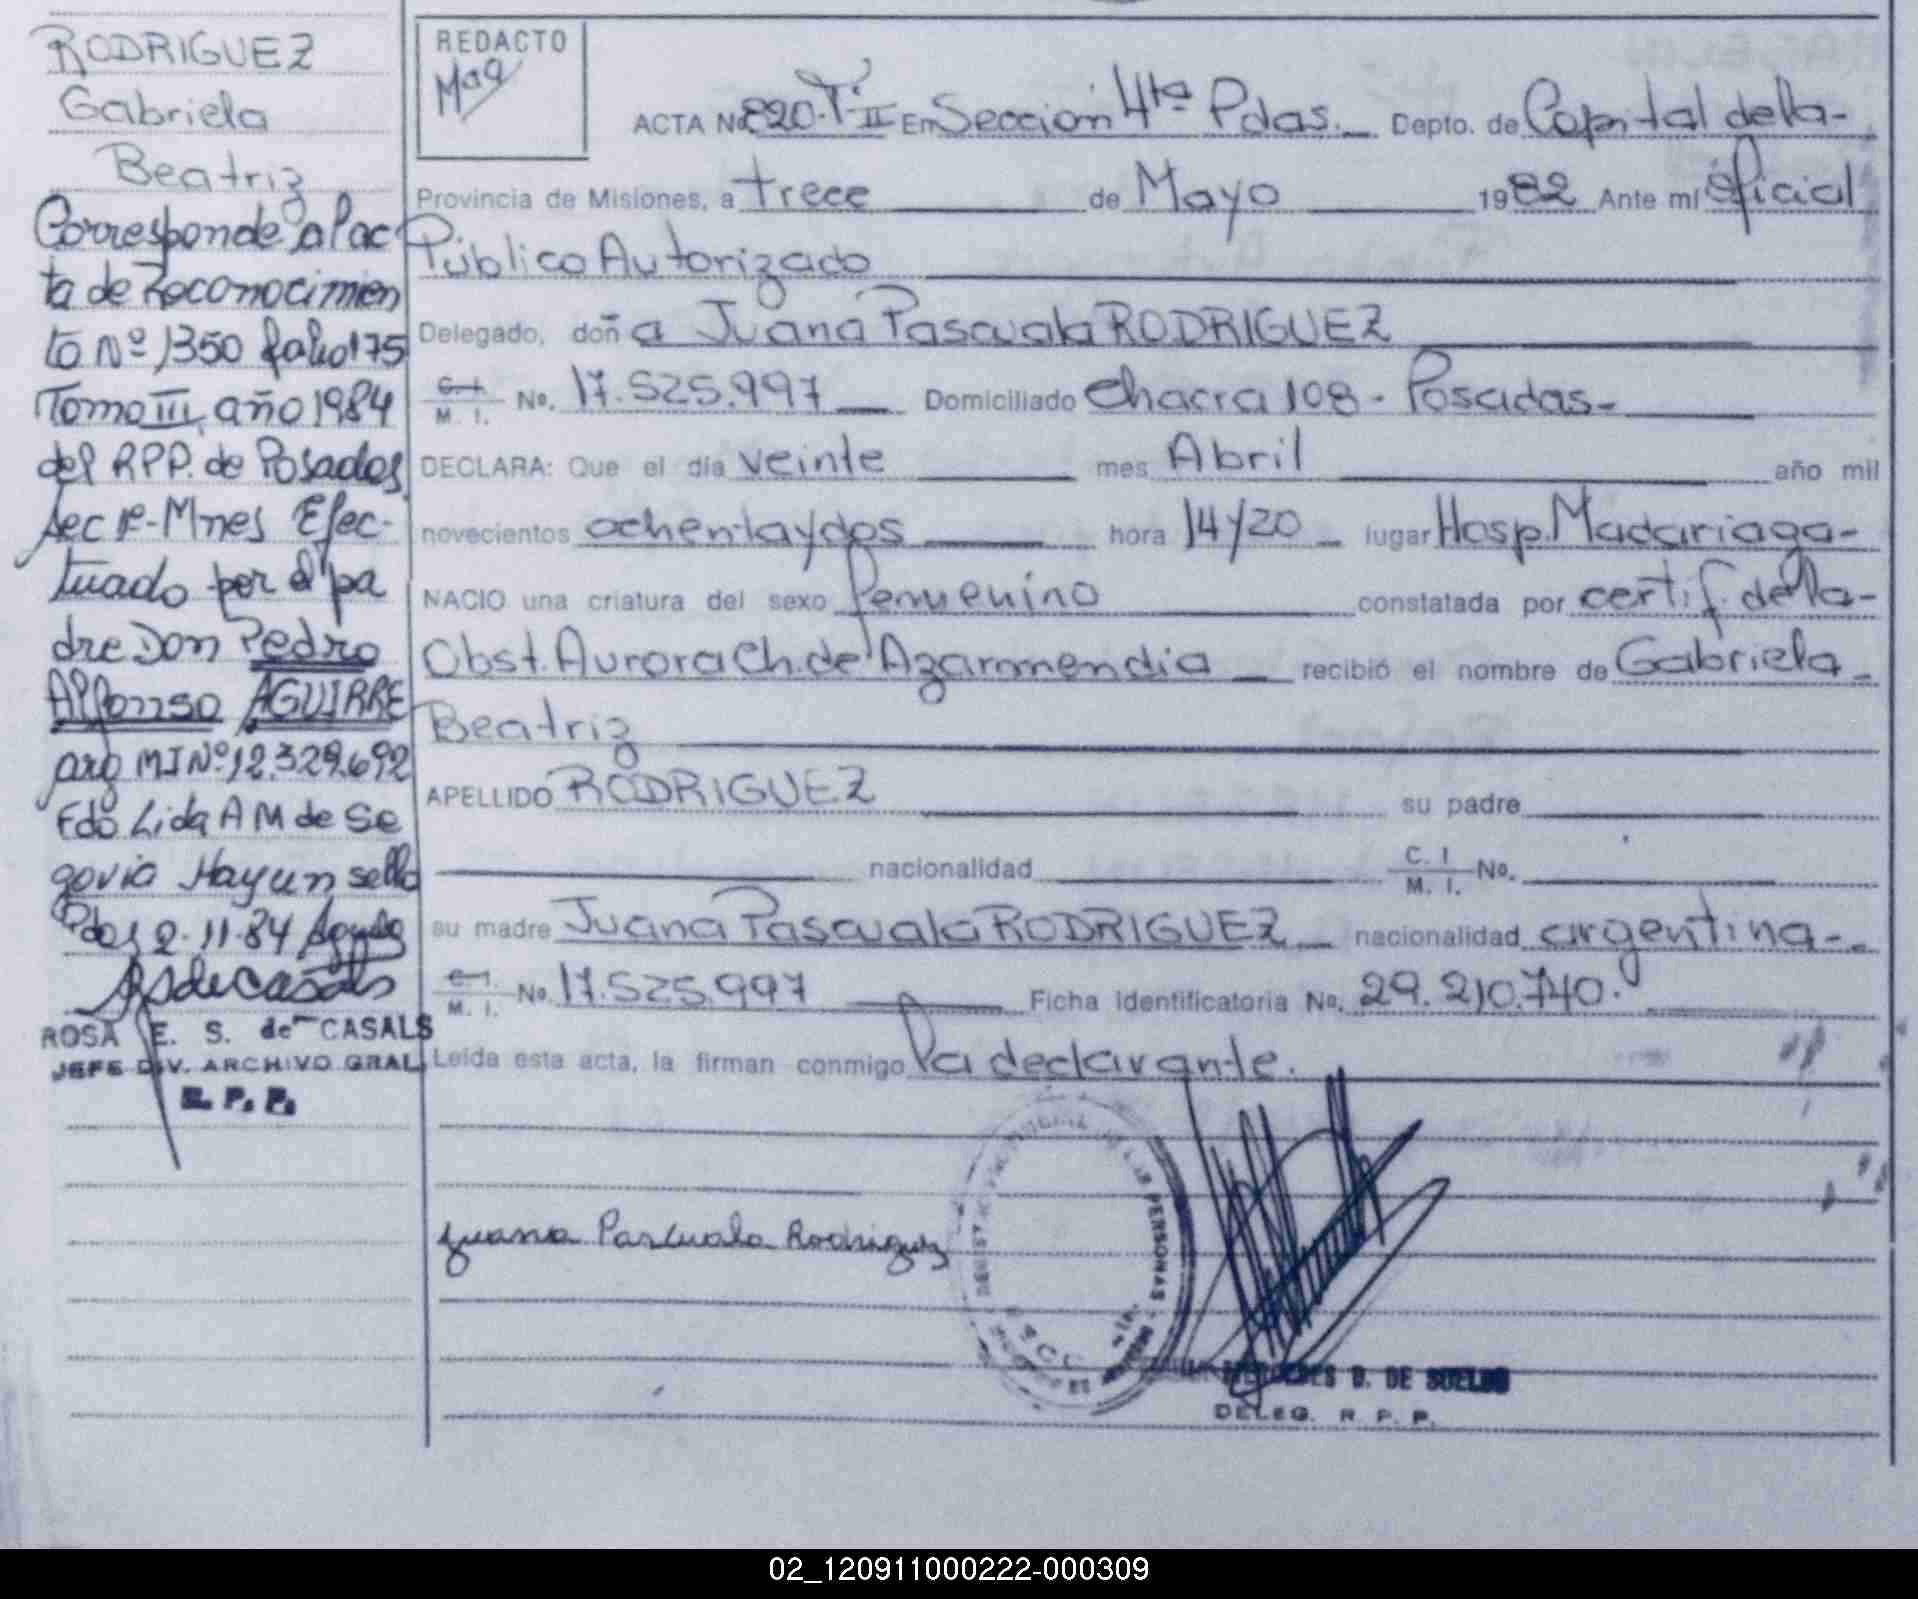 RODRIGUEZ
Gabriela
Beatriz
Corresponde al ac
ta de Reconocimien
to Nº 1350 folio 175
Tomo III, año 1984
del RPP. de Posadas
Sec 1º - Mnes Efec-
tuado por el pa
dre Don Pedro
Alfonso AGUIRRE
arg MI Nº 12.329.692
Fdo Lida A M de Se
govia Hay un sello
Pdas 2-11-84
ROSA E. S. de CASALS
JEFE DIV. ARCHIVO GRAL
R. P. P.
REDACTO
Maq
ACTA No 820-T-II En Sección 4ta Pdas. Depto. de Capital de la-
Provincia de Misiones, a trece de Mayo 1982 Ante mí oficial
Público Autorizado
Delegado, doña Juana Pascuala RODRIGUEZ
C. I. M. I. No. 17.525.997 Domiciliado Chacra 108 - Posadas-
DECLARA: Que el día veinte mes Abril año mil
novecientos ochenta y dos hora 14/20 lugar Hosp. Madariaga-
NACIO una criatura del sexo femenino constatada por certif. de la-
Obst. Aurora Ch. de Azarmendia recibió el nombre de Gabriela
Beatriz
APELLIDO RODRIGUEZ su padre
nacionalidad C. I M. I. No.
su madre Juana Pascuala RODRIGUEZ nacionalidad argentina-
C. I. M. I. No. 17.525.997 Ficha Identificatoria No. 29.210.740.
Leída esta acta, la firman conmigo la declarante.
Juana Pascuala Rodriguez
DE LAS PERSONAS
D. DE SUELDO
DELEG. R. P. P.
02_120911000222-000309